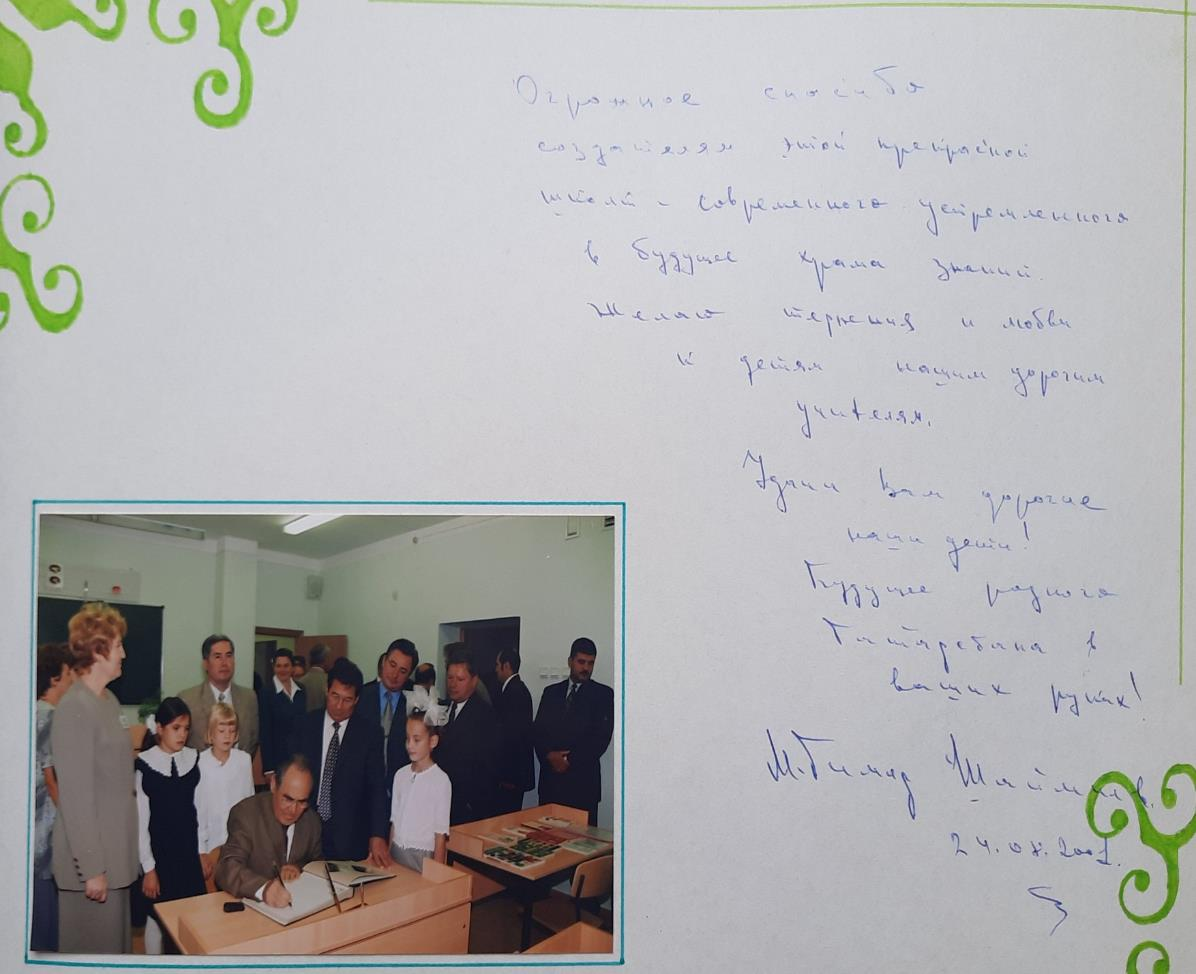 Огромное спасибо
создателям этой прекрасной
школы - современного устремленного
в будущее храма знаний.
Желаю терпения и любви
к детям нашим дорогим
учителям.
Удачи Вам дорогие
наши дети!
Будущее родного
Татарстана в
ваших руках!
М. Шаймиев.
24.08.2001.